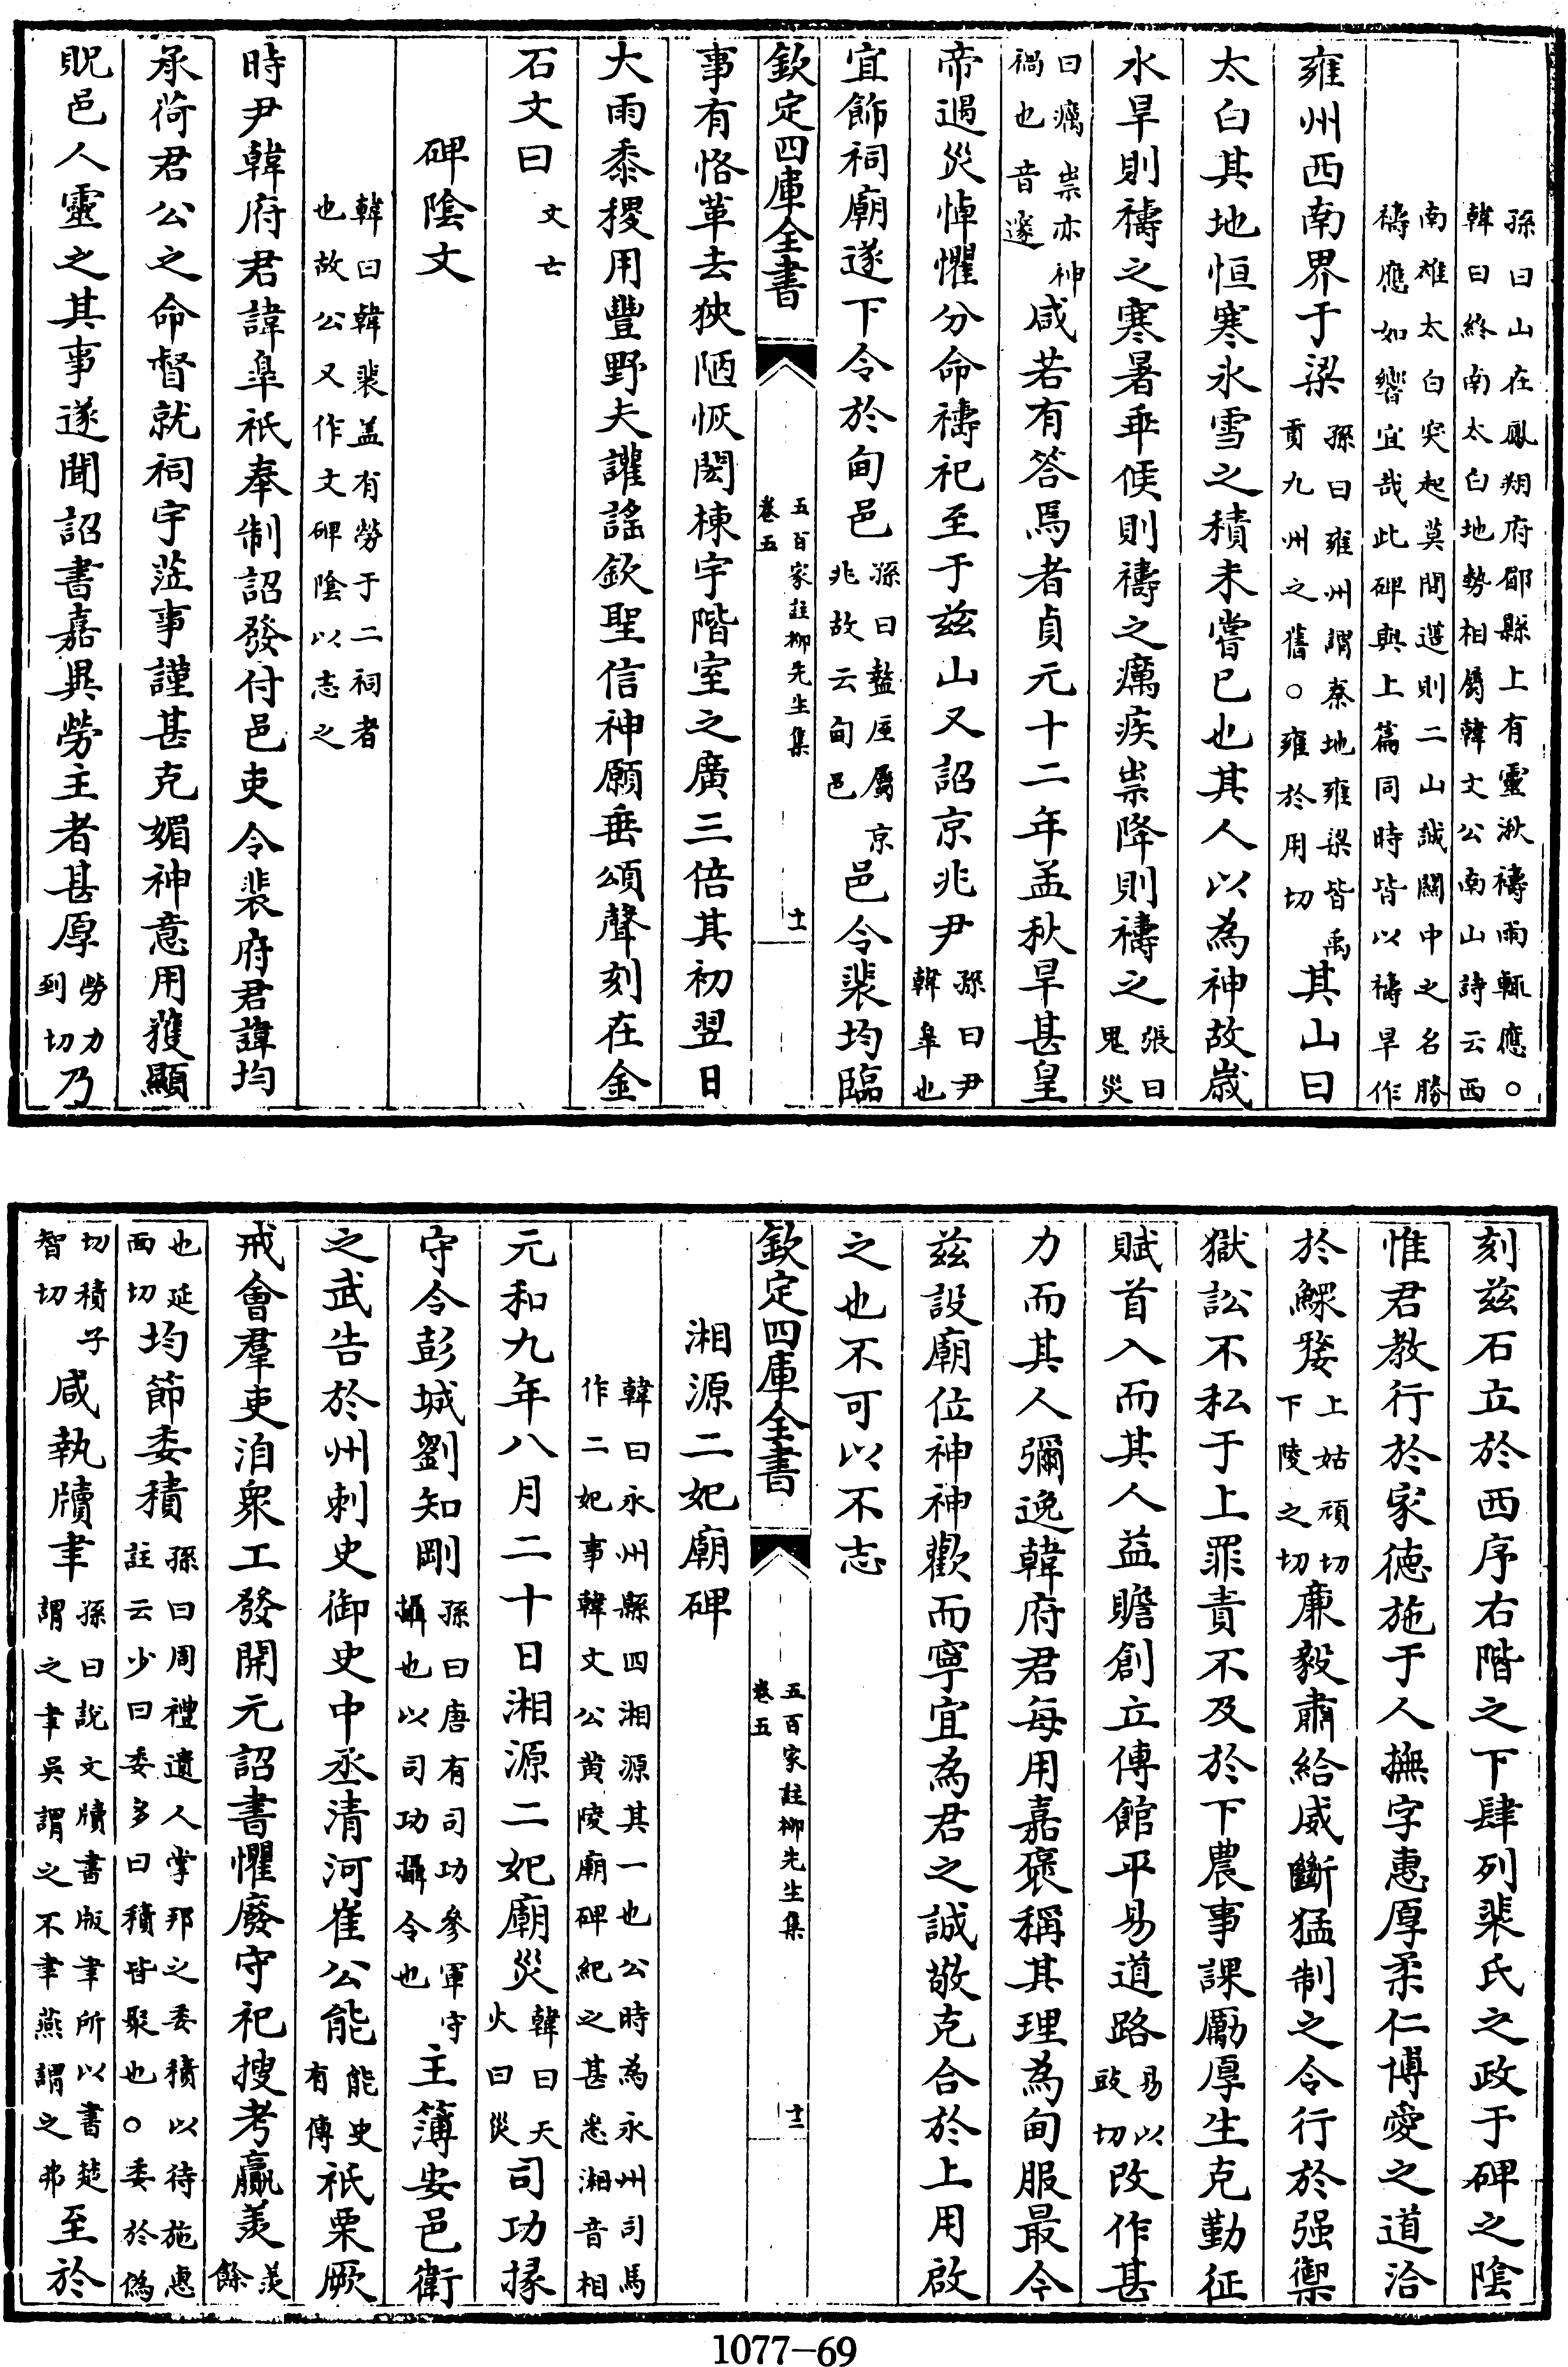 孫曰山在鳳翔府郿縣上有靈湫禱雨輒應○
韓曰終南太白地勢相屬韓文公南山詩云西
南雄太白突起莫間簉則二山誠關中之名勝
禱應如響宜哉此碑與上篇同時皆以禱旱作
雍州西南界于梁孫曰雍州謂秦地雍梁皆禹貢九州之舊○雍於用切其山曰
太白其地恒寒氷雪之積未嘗已也其人以為神故嵗
水旱則禱之寒暑乖候則禱之癘疾祟降則禱之張曰鬼災
曰癘祟亦神禍也音邃咸若有答焉者貞元十二年孟秋旱甚皇
帝遇災悼懼分命禱祀至于兹山又詔京兆尹孫曰尹韓臯也
宜飾祠廟遂下令於甸邑孫曰盩厔屬京兆故云甸邑邑令裴均臨
欽定四庫全書
五百家註栁先生集
卷五
十一
事有恪革去狹陋恢閎棟宇階室之廣三倍其初翌日
大雨黍稷用豐野夫讙謡欽聖信神願垂頌聲刻在金
石文曰文亡
碑隂文
韓曰韓裴盖有勞于二祠者
也故公又作文碑隂以志之
時尹韓府君諱臯祇奉制詔發付邑吏令裴府君諱均
承荷君公之命督就祠宇涖事謹甚克媚神意用獲顯
貺邑人靈之其事遂聞詔書嘉異勞主者甚厚勞力到切乃
刻兹石立於西序右階之下肆列裴氏之政于碑之隂
惟君教行於家徳施于人撫字惠厚柔仁博愛之道洽
於鰥嫠上姑頑切下陵之切廉毅肅給威斷猛制之令行於强禦
獄訟不私于上罪責不及於下農事課勵厚生克勤征
賦首入而其人益贍創立傳館平易道路易以豉切改作甚
力而其人彌逸韓府君每用嘉褒稱其理為甸服最今
兹設廟位神神歡而寧宜為君之誠敬克合於上用啟
之也不可以不志
欽定四庫全書
五百家註栁先生集
卷五
十二
湘源二妃廟碑
韓曰永州縣四湘源其一也公時為永州司馬
作二妃事韓文公黄陵廟碑紀之甚悉湘音相
元和九年八月二十日湘源二妃廟災韓曰天火曰災司功掾
守令彭城劉知剛孫曰唐有司功參軍守攝也以司功攝令也主簿安邑衛
之武告於州刺史御史中丞清河崔公能能史有傳祇栗厥
戒會羣吏洎衆工發開元詔書懼廢守祀搜考贏羨羨餘
也延面切均節委積孫曰周禮遺人掌邦之委積以待施惠註云少曰委多曰積皆聚也○委於偽
切積子智切咸執牘聿孫曰説文牘書版聿所以書楚謂之聿吳謂之不聿燕謂之弗至於
1077—69